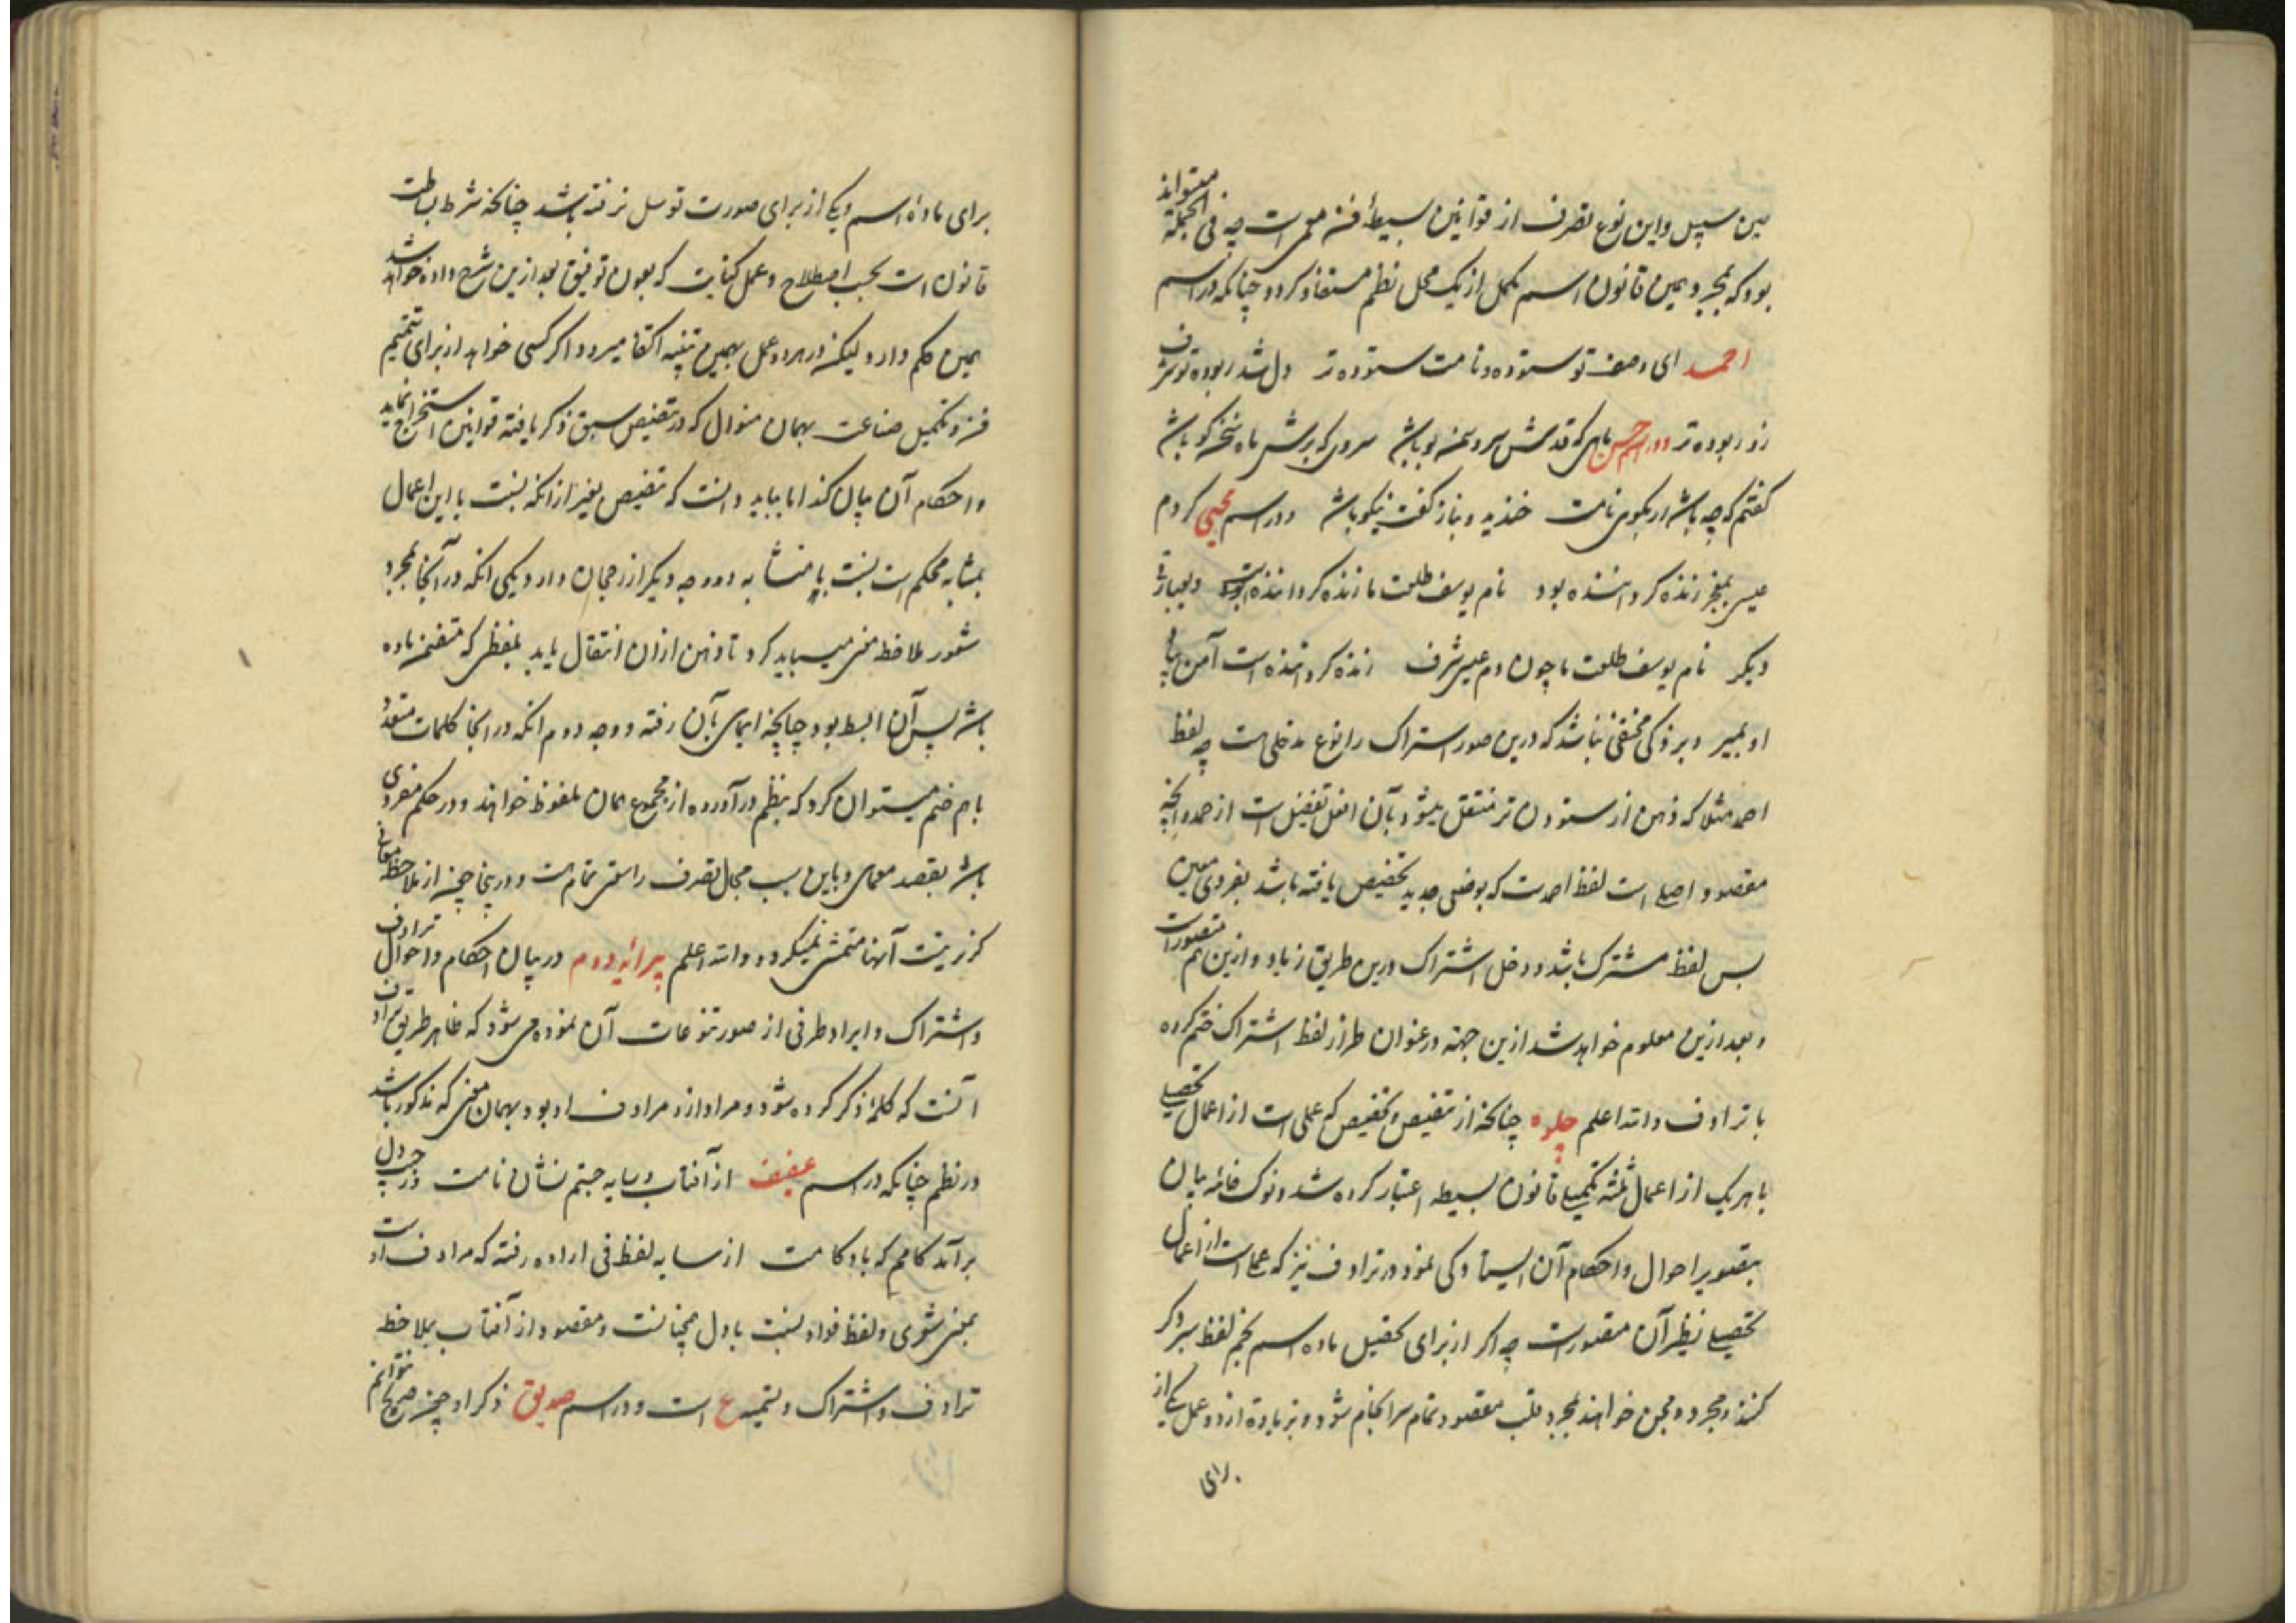 من سبیل و این نوع تصرف از قوانین بسیطهٔ فن معمی است چه فی الجمله میتواند
بود که بمجرد همین قانون اسم مکمل از یک محل نظم مستفاد کردد چنانکه در اسم
احمد ای وصف تو ستوده و نامت ستوده تر دل شد ربوده تو شرف
زو ربوده تر و در اسم حسن ماهی که قدش سرو سمن بو باشد سروی که برش ماه سخن کو باشد
کفتم که چه باشد ار بکوی نامت خندید و بناز کفت نیکو باشد و در اسم محیی کردم
عیسی زنده کرداننده بود نام یوسف طلعت ما زنده کرداننده است و بعبارت
دیکر نام یوسف طلعت ما چون دم عیسی شرف زنده کرداننده است آمن
او بمیر و بر ذکی مخفی نباشد که درین صور اشتراک را نوع مدخلی هست چه لفظ
احمد مثلا که ذهن از ستوده تر منتقل میشود بآن افعل تفضیل است از حمد و آنچه
مقصود اصلی است لفظ احمدست که بوضعی جدید تخصیص یافته باشد بفردی معین
بس لفظ مشترک باشد و دخل اشتراک درین طریق زیاد و ازین هم متصورست
و بعد ازین معلوم خواهد شد ازین جهة در عنوان طراز لفظ اشتراک ضم کرده
با ترادف والله اعلم جلوه چنانکه از تنصیص و تخصیص که عملی است از اعمال تحصیلی
با هریک از اعمال ثلثه تکمیلی قانون بسیطه اعتبار کرده شد و نوک خامه بیان
بتصویر احوال و احکام آن ایستادکی نمود در ترادف نیز که عملی است از اعمال
تحصیلی نظیر آن متصورست چه اکر از برای تحصیل ماده اسم نجم لفظ سر ذکر
کنند و مجرد و مجن خواهند بمجرد قلب مقصود تمام سرانجام شود و بزیاده از دو عمل یکی از
برای
برای ماده اسم و یکی از برای صورت توسل نرفته باشد چنانکه شرط بساطت
قانون است بحسب اصطلاح و عمل کنایت که بعون توفیق بعد ازین شرح داده خواهد شد
همین حکم دارد و لیکن در هر دو عمل بهمین تنبیه اکتفا میرود اکر کسی خواهد از برای تتمیم
فن و تکمیل صناعت بهمان منوال که در تنصیص سبق ذکر یافته قوانین استخراج نماید
و احکام آن بیان کند اما بباید دانست که تنصیص بغیر از آنکه نسبت با این اعمال
بمثابه محکم است نسبت با متشابه دو وجه دیکر از رجحان دارد یکی آنکه در آنجا بمجرد
شعور ملاحظه معنی میباید کرد تا ذهن از ان انتقال یابد بلفظی که متضمن ماده
باشد پس آن ابسط بود چنانچه ایمای بآن رفته و وجه دوم آنکه در انجا کلمات متعدد
باهم ضم میتوان کرد که بنظم درآورده از مجموع همان ملفوظ خواهند و در حکم مفردی
باشد بقصد معمای و باین سبب مجال تصرف را سعتی تمام هست و در پنجا جز از ملاحظه معانی
کزریست آنها متمشی نمیکردد والله اعلم پیرایه دوم در بیان احکام و احوال ترادف
و اشتراک و ایراد طرفی از صور تنوعات آن نموده می شود که ظاهر طریق ترادف
آنست که کلمهٔ ذکر کرده شود و مراد از و مرادف او بود بهمان معنی که مذکور باشد
در نظم چنانکه در اسم عفیف از آفتاب و سایه جستم نشان نامت در چپ دل
برآمد کامم که باد کامت از سایه لفظ فی اراده رفته که مرادف اوست
بمعنی شعری و لفظ فواد نسبت با دل همچنانست و مقصود از آفتاب بملاحظه
ترادف و اشتراک و تتمیم ع است و در اسم صدیق ذکر او جز صریح نتوانم